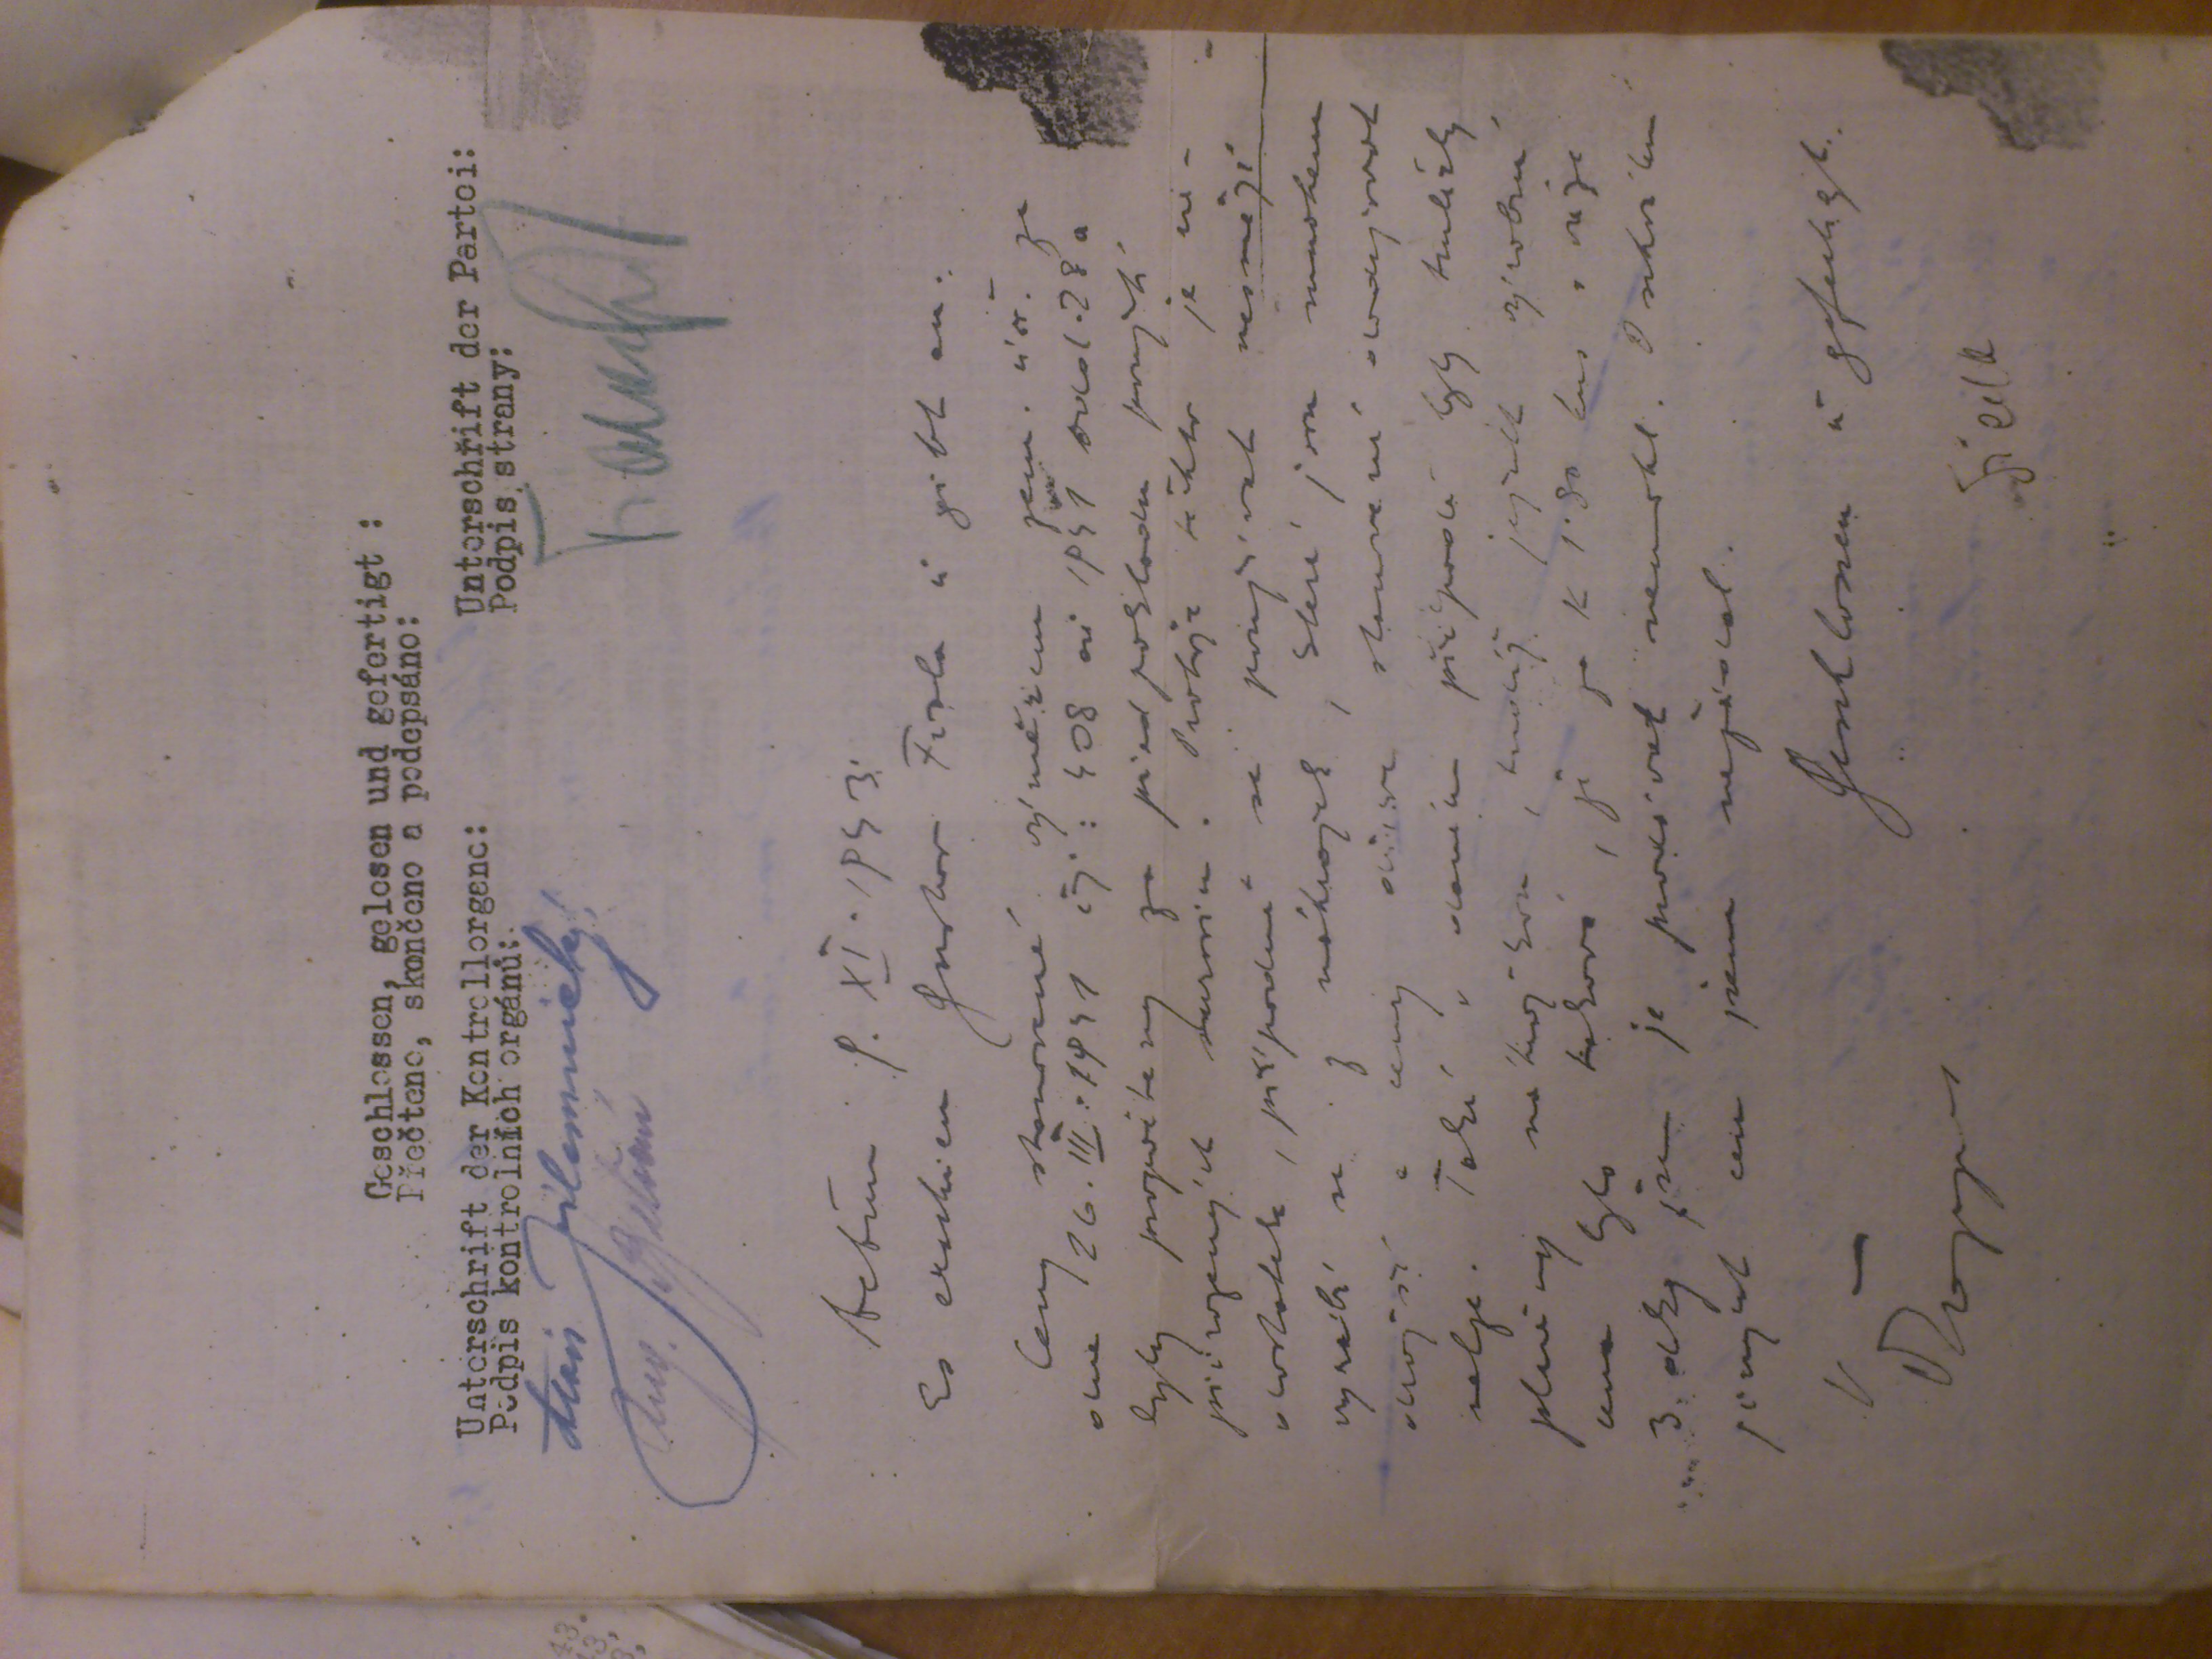 Geschlossen, gelesen und gefertigt :
Přečteno, skončeno a podepsáno:
Unterschrift der Kontrollorgane:
Unterschrift der Partei:
Podpis kontrolních orgánů:
Podpis strany:
Alois Jilemnický
Aug.
Actum 9. XI. 1943.
Es erschien Gustav Fiala u gibt an:
Ceny stanovené výměrem zem. úř. ze
dne 26. III. 1941 čj: 408 ai 1941 odd. 28 a
byly propočteny za předpokladu použití
přirozených surovin. Protože těchto je ne-
dostatek, případně se používat nesmějí
vyrábí se z náhražek, které jsou mnohem
dražší a ceny dříve stanovené dodržovat
nelze. Také v daném případě byly
plněny náhražkou, tudíž jejich výrobní
cena byla taková, že za K 1.80 kus o váze
3 dkg jsem je prodávat nemohl. O schválení
jiných cen jsem nežádal.
Geschlossen u gefertigt.
Fiala